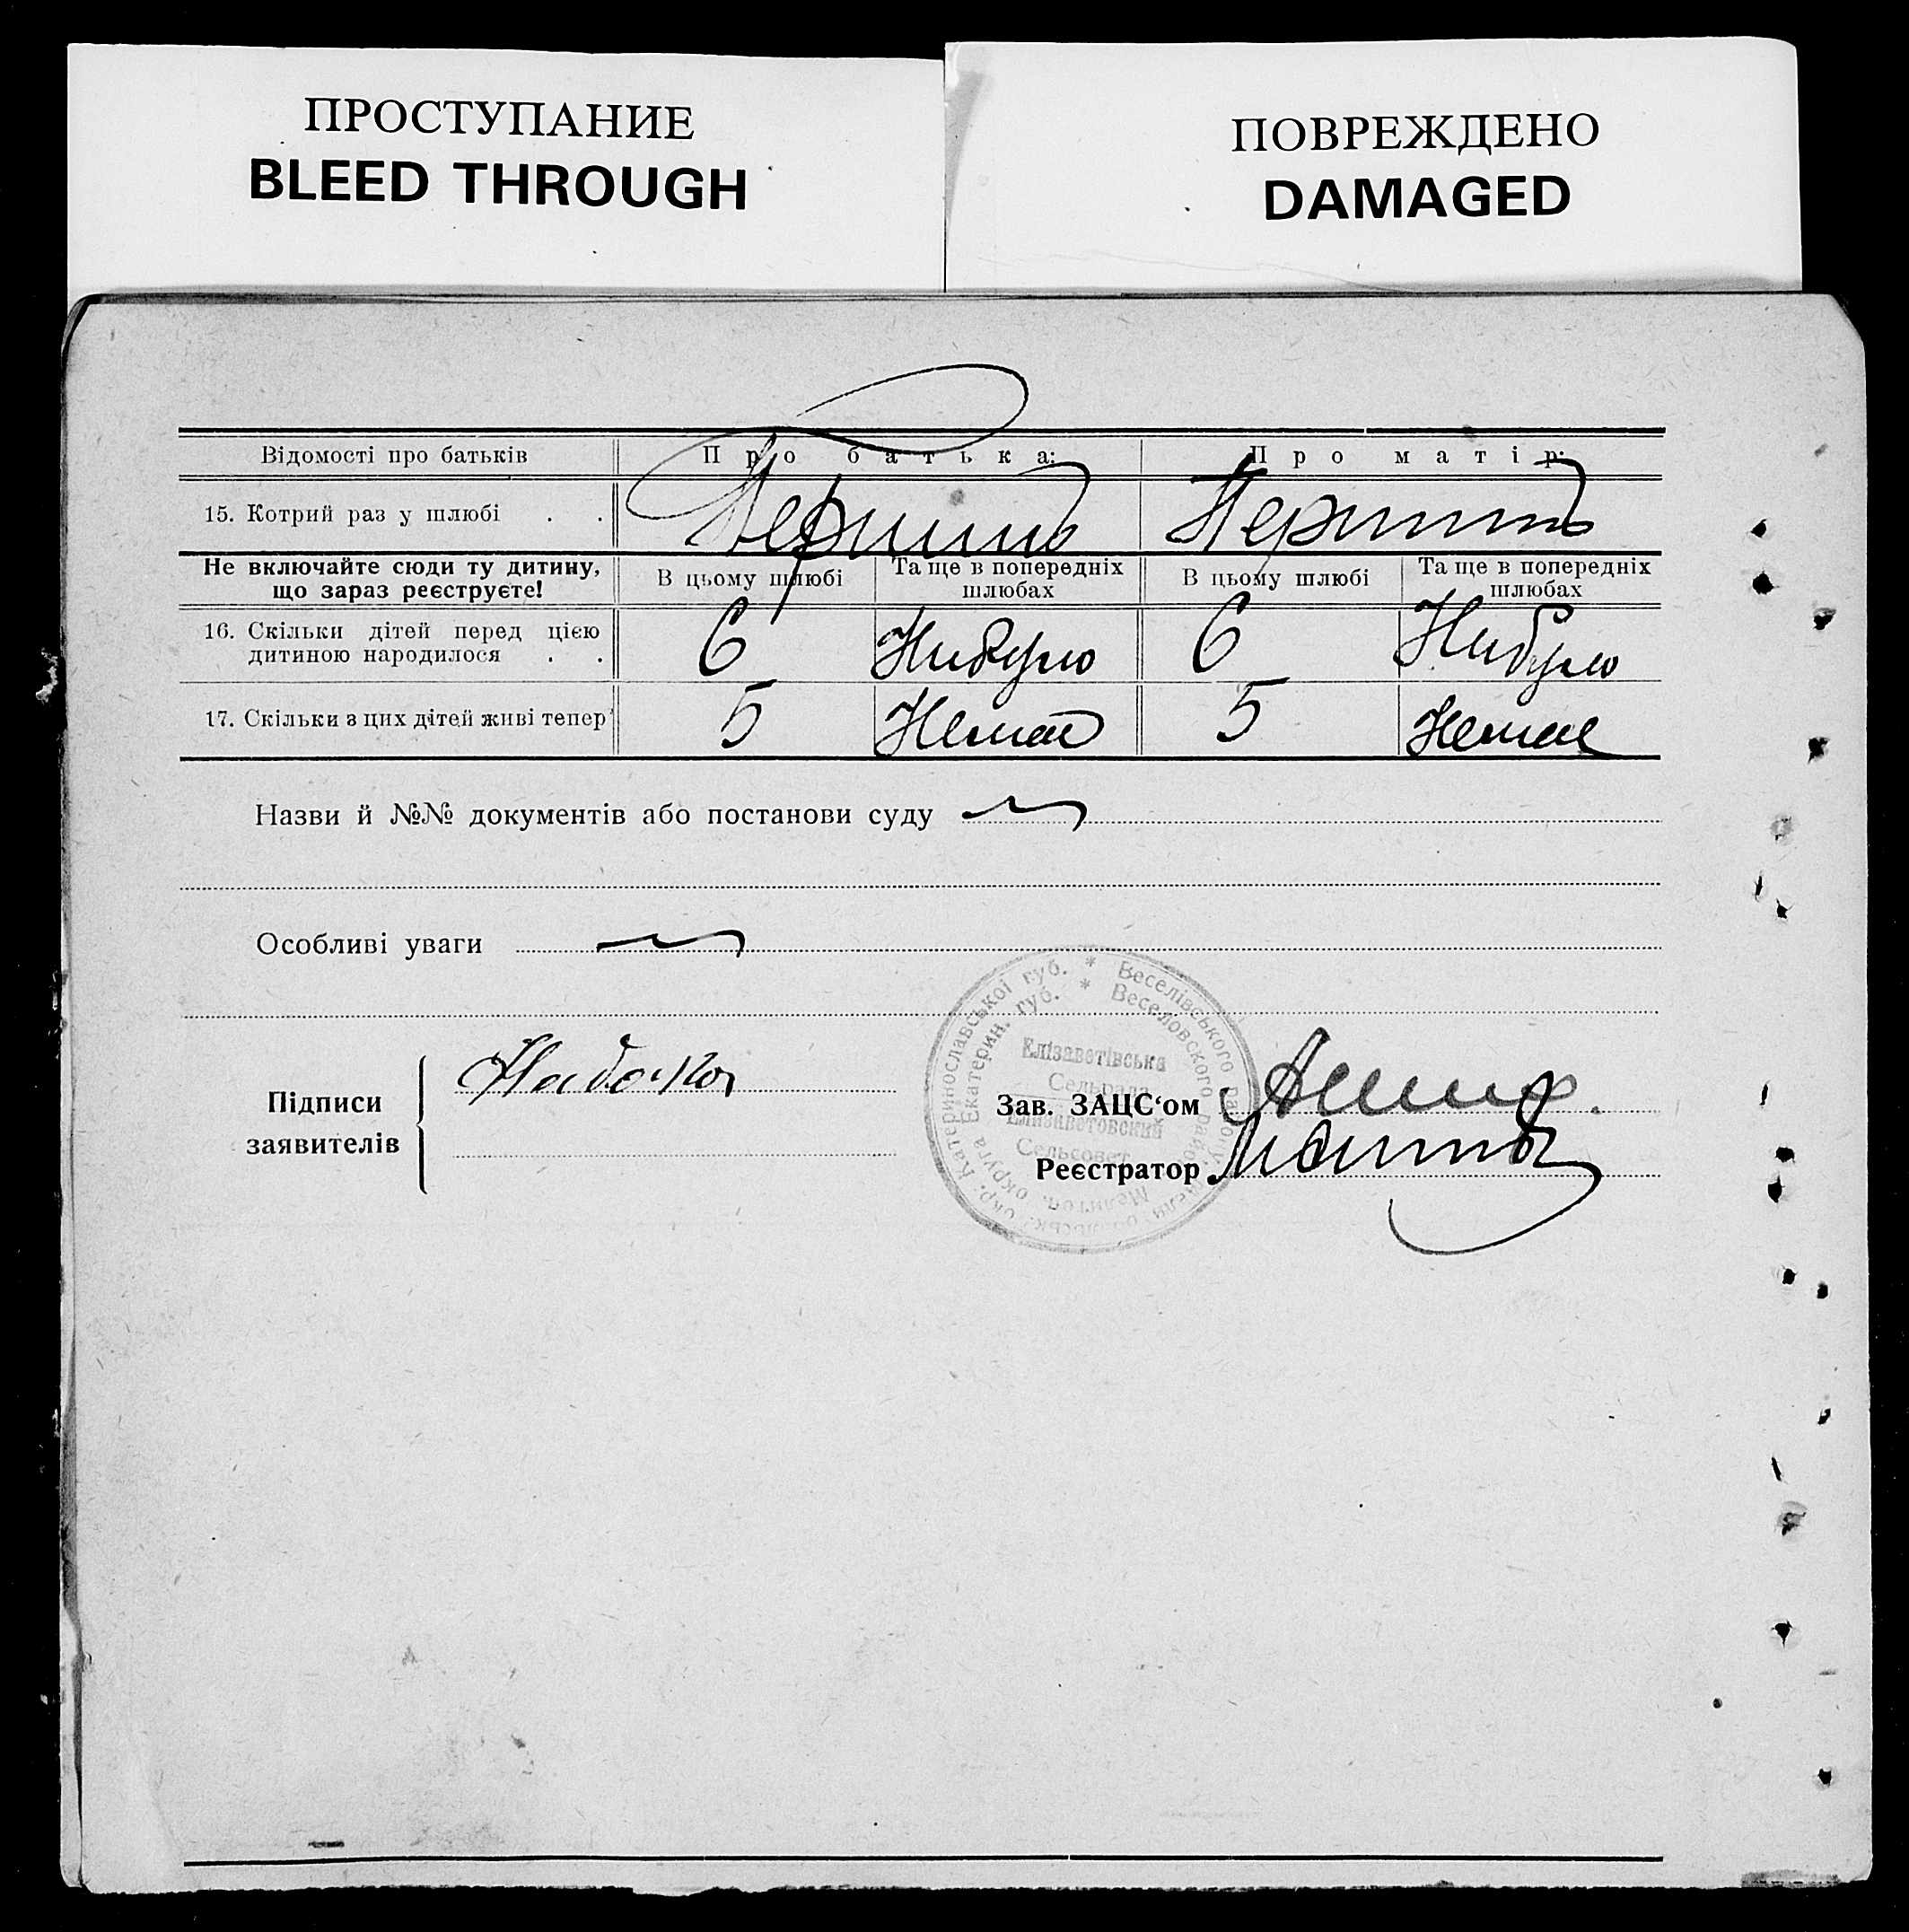 ПРОСТУПАНИЕ
BLEED THROUGH
ПОВРЕЖДЕНО
DAMAGED
Відомості про батьків Про батька: Про матір:
15. Котрий раз у шлюбі . . Перший Перший
Не включайте сюди ту дитину,
що зараз реєструєте!
В цьому шлюбі
Та ще в попередніх
шлюбах
В цьому шлюбі
Та ще в попередніх
шлюбах
16. Скільки дітей перед цією
дитиною народилося . . 6 Небуло 6 Небуло
17. Скільки з цих дітей живі тепер 5 Немає 5 Немає
Назви й №№ документів або постанови суду
Особливі уваги
Підписи
заявителів
Набока
Катеринославської губ. * Веселівського району
Екатерин. губ. * Веселовского район
Мелитоп. округа
Елізаветівська
Сельрада
Елизаветовский
Сельсовет
Зав. ЗАЦС‘ом
Реєстратор